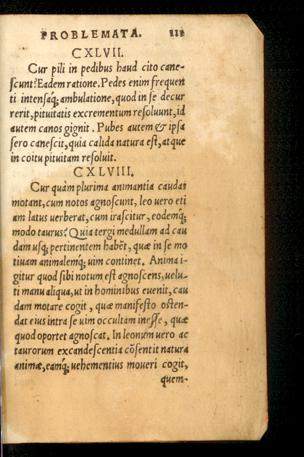 PROBLEMATA. 111
CXLVII.
Cur pili in pedibus haud cito cane-
scunt? Eadem ratione. Pedes enim frequen
ti intensáq; ambulatione, quod in se decur
rerit, pituitatis excrementum resoluunt, id
autem canos gignit. Pubes autem & ipsa
sero canescit, quia calida natura est, atque
in coitu pituitam resoluit.
CXLVIII.
Cur quàm plurima animantia caudas
motant, cum notos agnoscunt, leo vero eti
am latus verberat, cum irascitur, eodemq;
modo taurus? Quia tergi medullam ad cau
dam usq; pertinentem habēt, quæ in se mo
tiuam animalemq; uim continet. Anima i-
gitur quod sibi notum est agnoscens, uelu-
ti manu aliqua, ut in hominibus euenit, cau
dam motare cogit, quæ manifesto osten-
dat eius intra se uim occultam inesse, quæ
quod oportet agnoscat. In leonum uero ac
taurorum excandescentia cōsentit natura
animæ, eamq; uehementius moueri cogit,
quem-